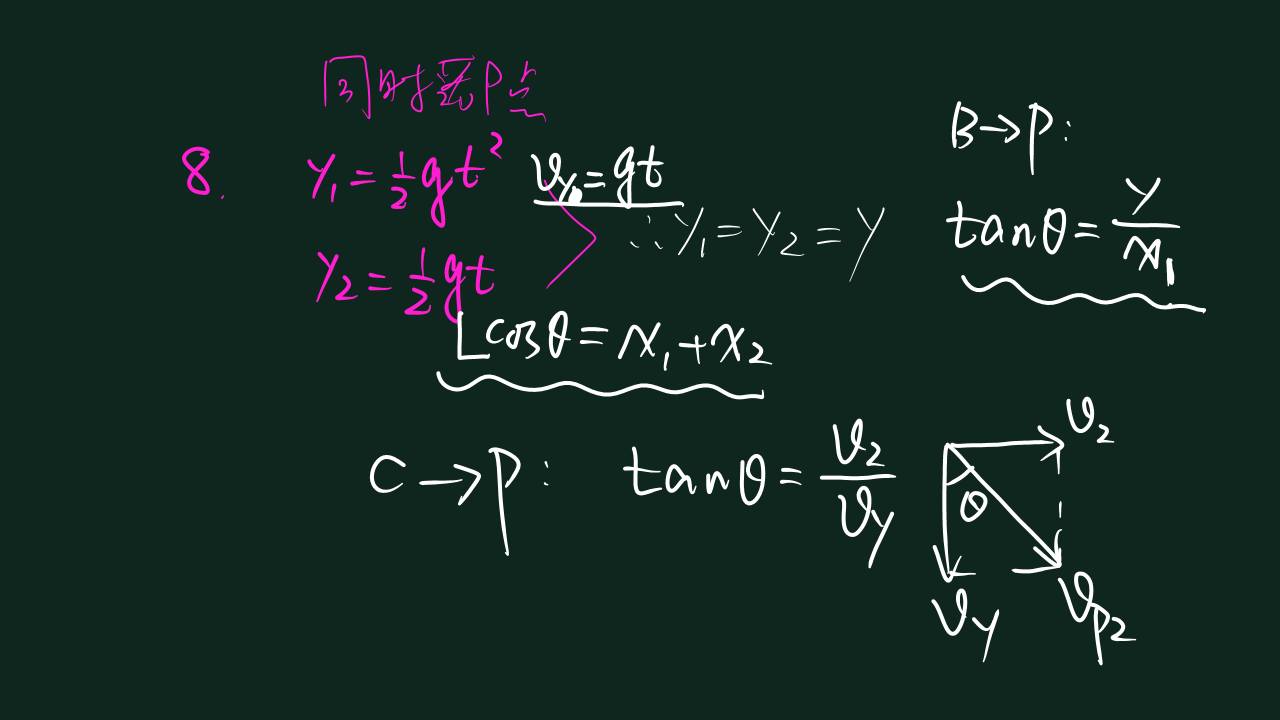 同时落P点
8. y₁=½gt² v_y=gt
y₂=½gt ∴y₁=y₂=y
Lcosθ=x₁+x₂
B→P:
tanθ=y/x₁
C→P: tanθ=v₂/v_y
v₂
θ
v_y
v_p₂